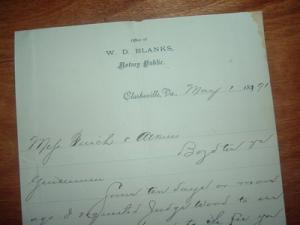 Office of
W. D. BLANKS,
Notary Public.
Clarksville, Va., May 1 1891
Mess Finch & Atkins
Boydton Va
Gentlemen
Some ten days or more
ago I requested Judge Wood to